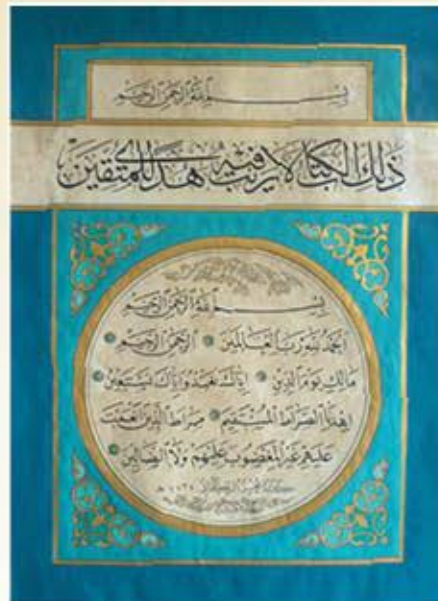 بسم الله الرحمن الرحيم
ذلك الكتاب لا ريب فيه هدى للمتقين
بسم الله الرحمن الرحيم
الحمد لله رب العالمين الرحمن الرحيم
مالك يوم الدين إياك نعبد وإياك نستعين
اهدنا الصراط المستقيم صراط الذين أنعمت
عليهم غير المغضوب عليهم ولا الضالين